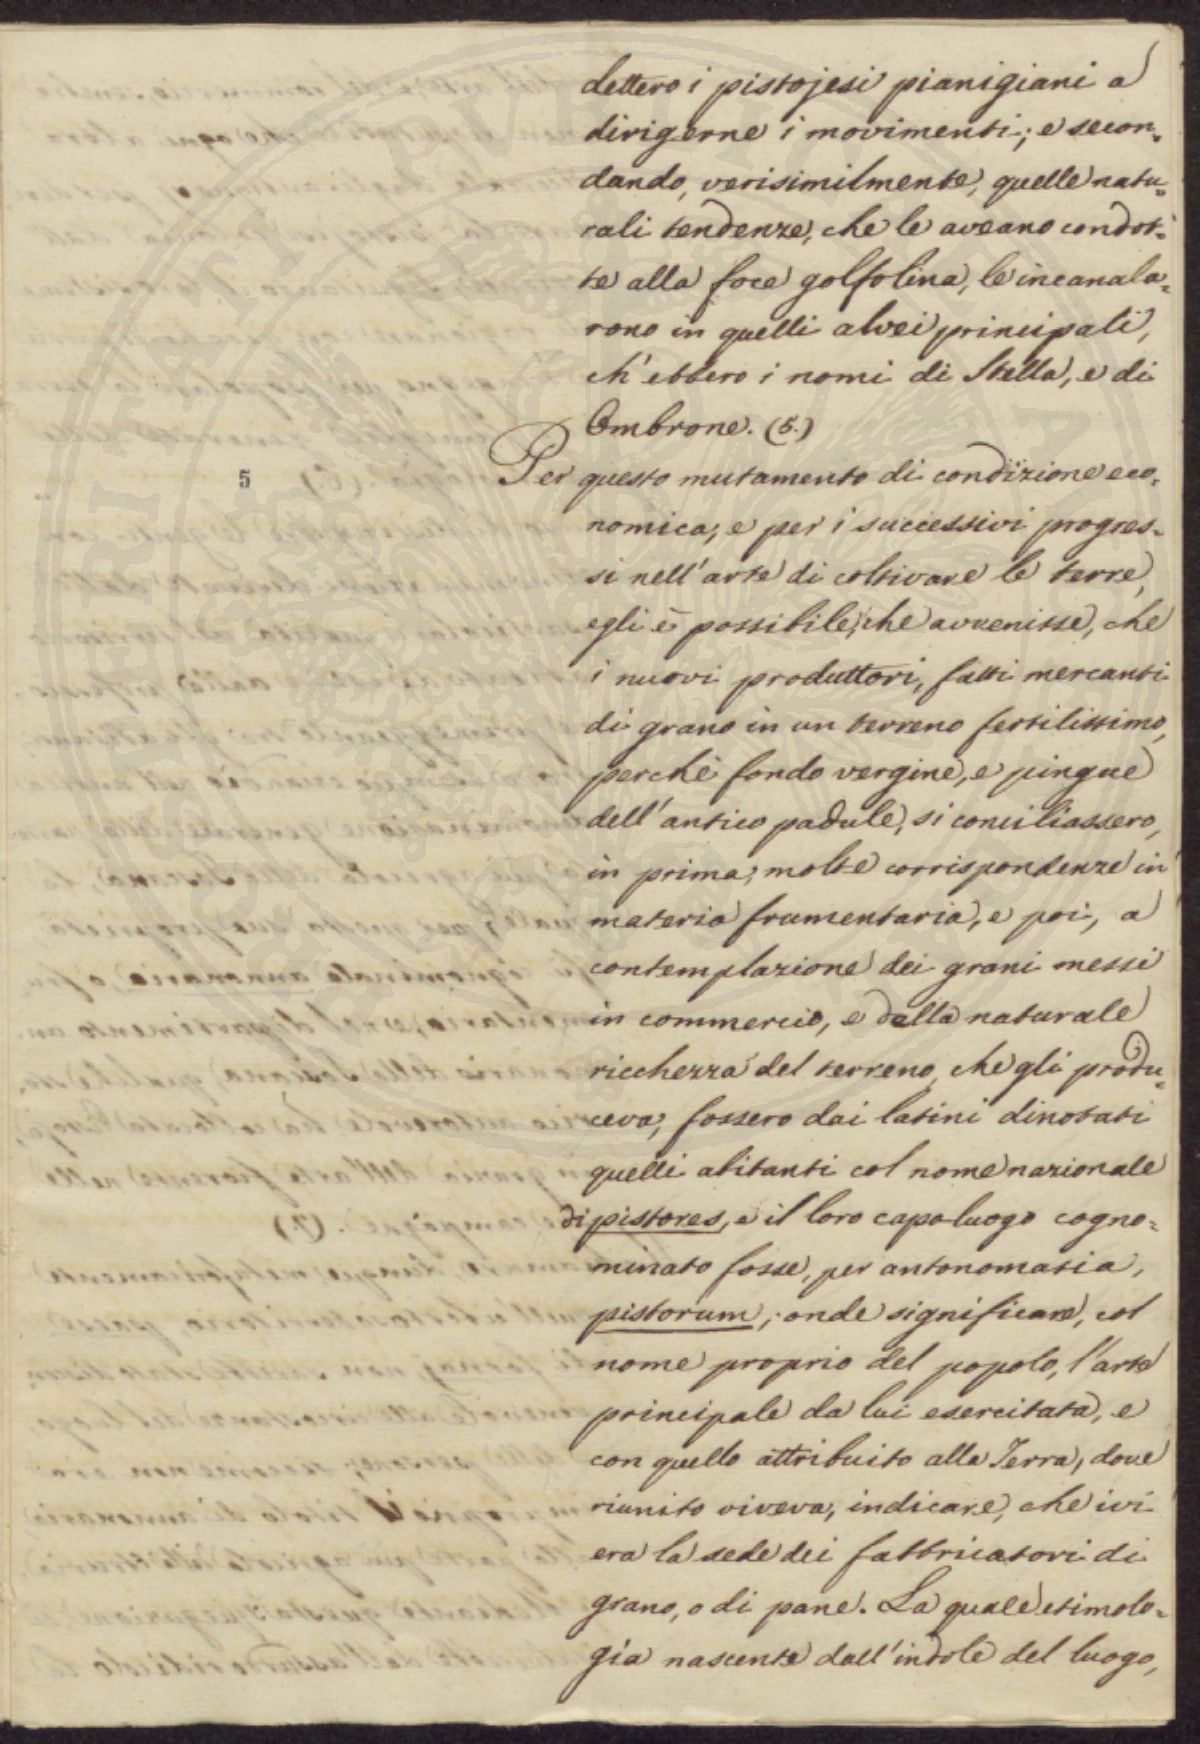 dettero i pistojesi pianigiani a
dirigerne i movimenti; e secon-
dando, verisimilmente, quelle natu-
rali tendenze, che le aveano condot-
te alla foce golfolina, le incanala-
rono in quelli alvei principali,
ch'ebbero i nomi di Stella, e di
Ombrone. (5.)
Per questo mutamento di condizione eco-
5
nomica, e per i successivi progres-
si nell'arte di coltivare le terre,
egli è possibile, che avvenisse, che
i nuovi produttori, fatti mercanti
di grano in un terreno fertilissimo,
perchè fondo vergine, e pingue
dell'antico padule, si conciliassero,
in prima, molte corrispondenze in
materia frumentaria, e poi, a
contemplazione dei grani messi
in commercio, e della naturale
ricchezza del terreno, che gli produ-
ceva, fossero dai latini dinotati
quelli abitanti col nome nazionale
di pistores, e il loro capo-luogo cogno-
minato fosse, per antonomasia,
pistorum; onde significare, col
nome proprio del popolo, l'arte
principale da lui esercitata, e
con quello attribuito alla Terra, dove
riunito viveva, indicare, che ivi
era la sede dei fabbricatori di
grano, o di pane. La quale etimolo-
gia nascente dall'indole del luogo,